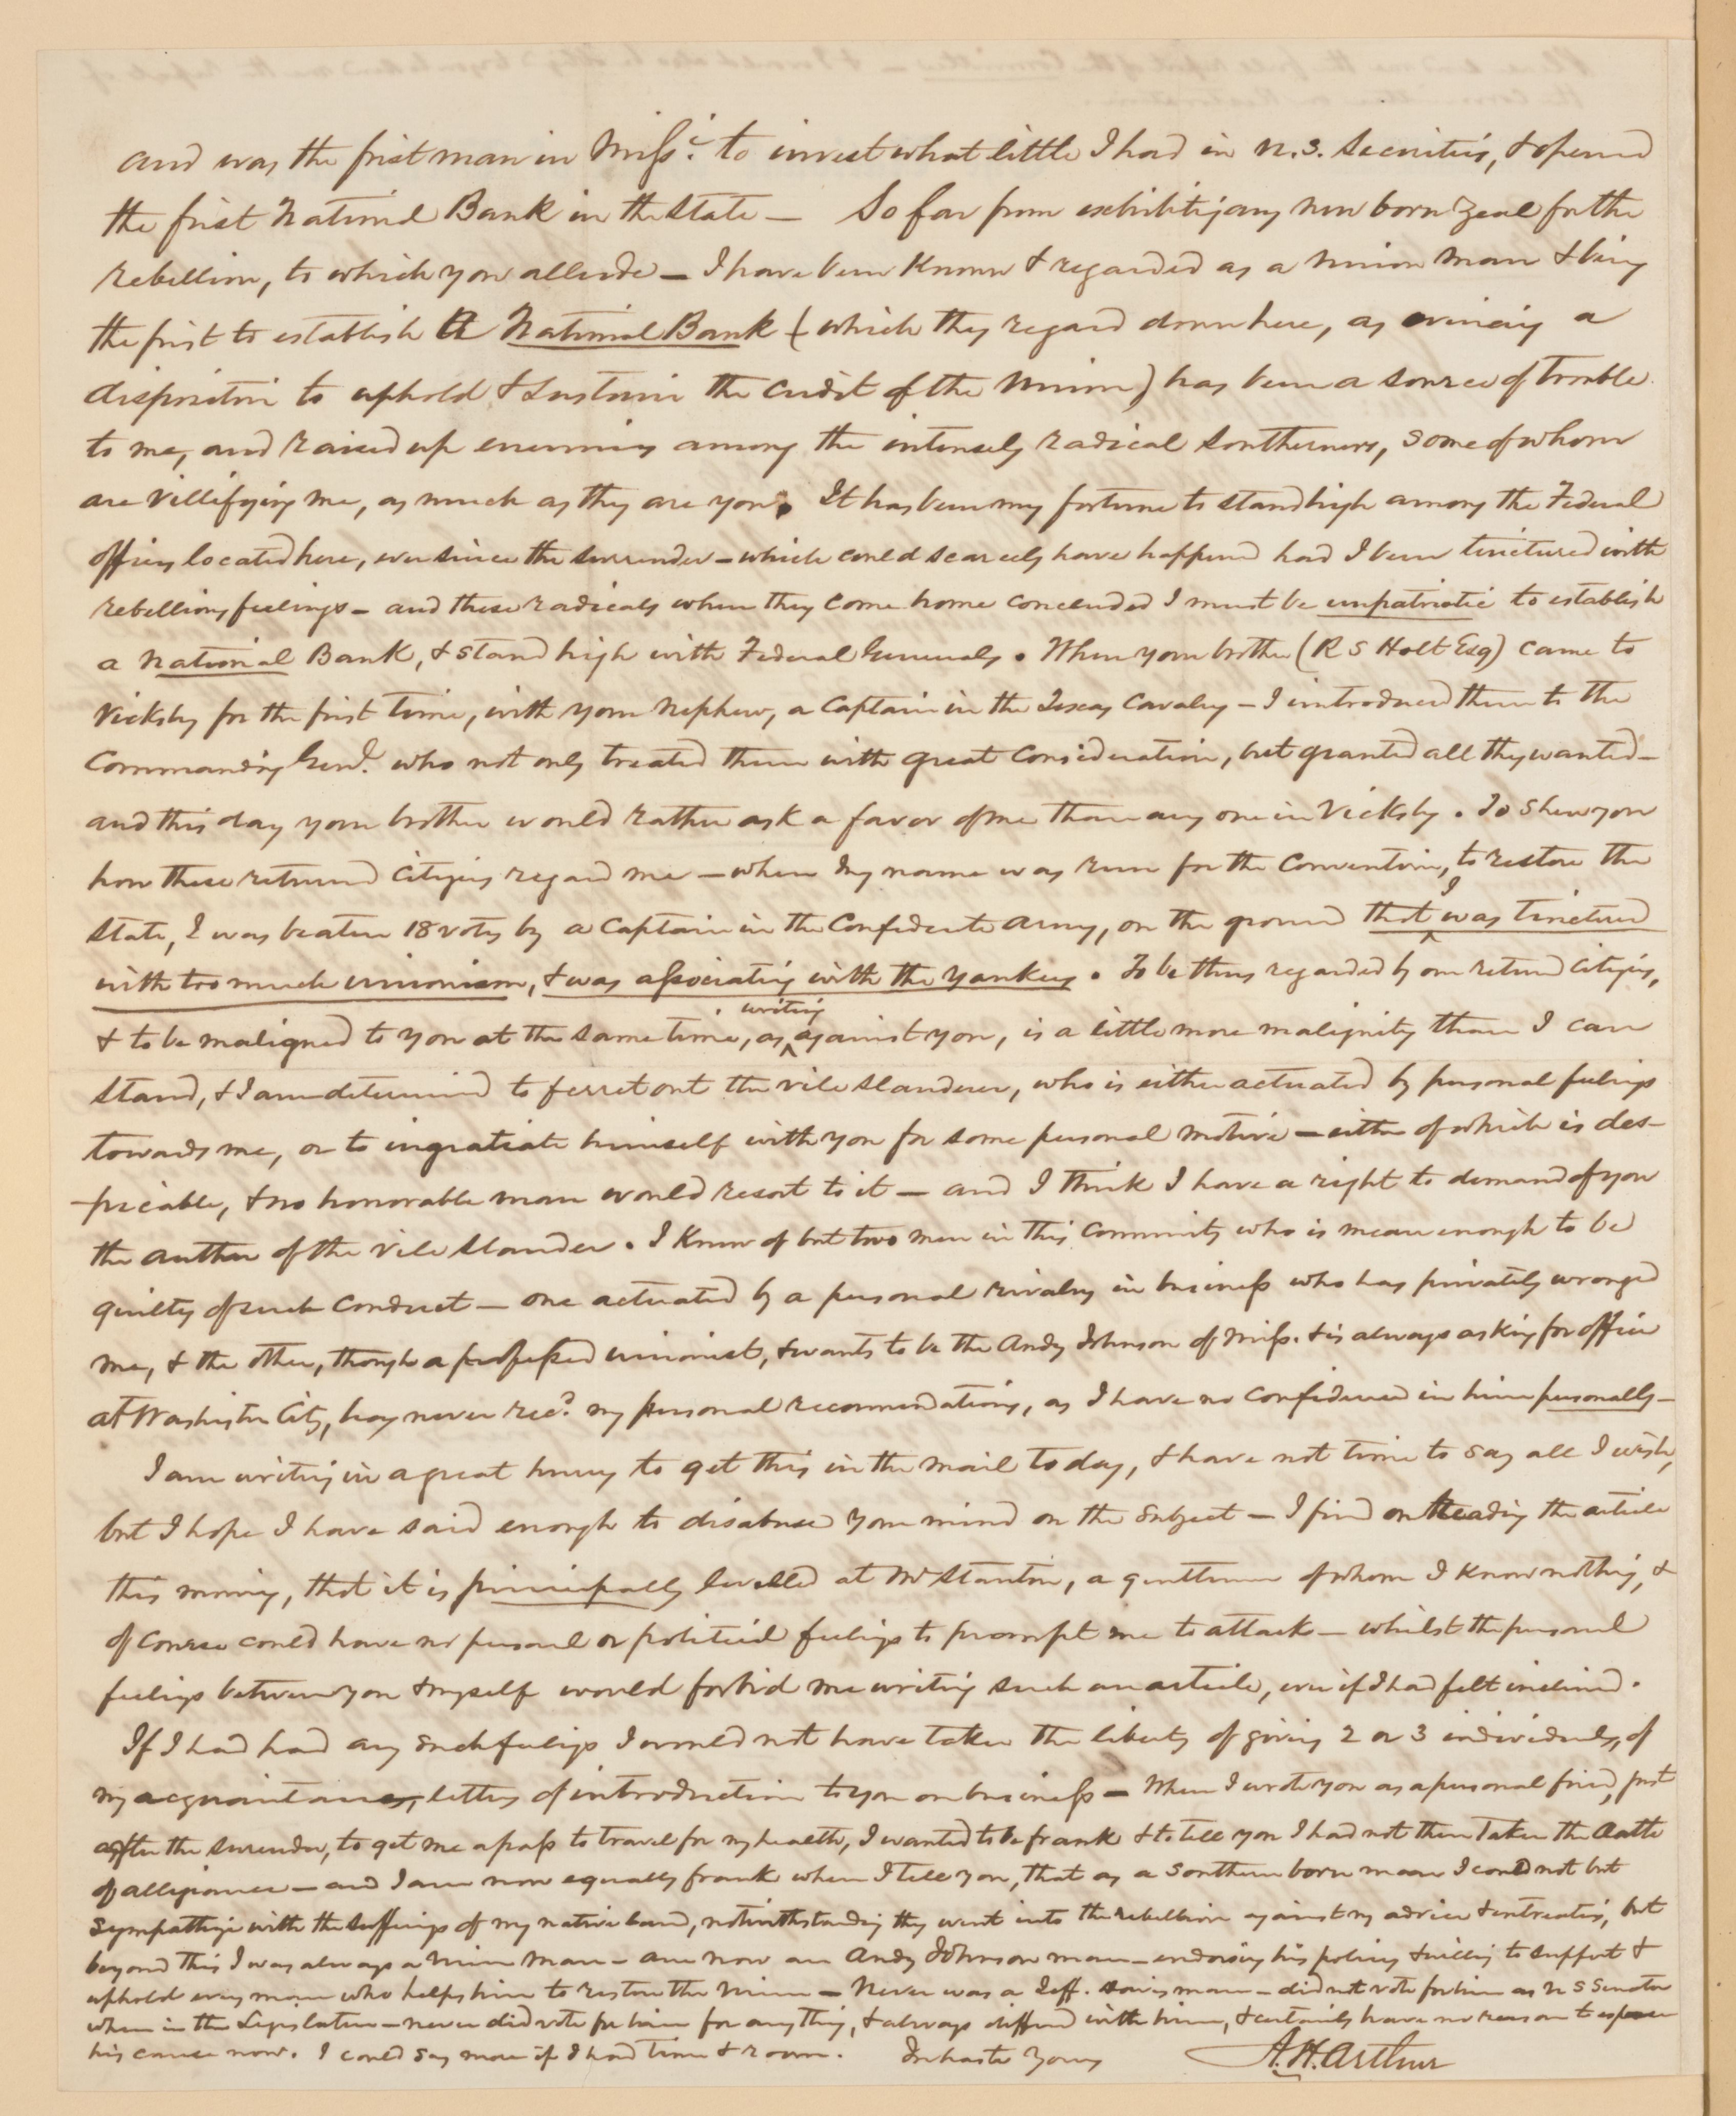 and was the first man in Missi. to invest what little I had in U.S. Securities, & opened
the first National Bank in the State — So far from exhibiting any new born zeal for the
rebellion, to which you allude — I have been known & regarded as a Union man & being
the first to establish a National Bank (which they regard down here, as evincing a
disposition to uphold & sustain the credit of the Union) has been a source of trouble
to me, and raised up enemies among the intensely radical Southerners, some of whom
are villifying me, as much as they are you. It has been my fortune to stand high among the Federal
officers located here, ever since the surrender — which could scarcely have happened had I been tinctured with
rebellious feelings — and these radicals when they come home concluded I must be unpatriotic to establish
a National Bank, & stand high with Federal Generals. When your brother (R S Holt Esq) came to
Vicksbg for the first time, with your nephew, a Captain in the Texas Cavalry — I introduced them to the
Commanding Genl. who not only treated them with great consideration, but granted all they wanted —
and this day your brother would rather ask a favor of me than any one in Vicksbg. To shew you
how these returned citizens regard me — when my name was run for the Convention, to restore the
State, I was beaten 18 votes by a Captain in the Confederate Army, on the ground that I was tinctured
with too much unionism, & was associating with the Yankees. To be thus regarded by our returned citizens,
& to be maligned to you at the same time, as writing against you, is a little more malignity than I can
stand, & I am determined to ferret out the vile slanderer, who is either actuated by personal feelings
towards me, or to ingratiate himself with you for some personal motive — either of which is des-
-picable, & no honorable man would resort to it — and I think I have a right to demand of you
the author of the vile slander. I know of but two men in this community who is mean enough to be
guilty of such conduct — one actuated by a personal rivalry in business who has privately wronged
me, & the other, though a professed unionist, & wants to be the Andy Johnson of Miss. & is always asking for office
at Washington City, has never recd. my personal recommendations, as I have no confidence in him personally —
I am writing in a great hurry to get this in the mail today, & have not time to say all I wish,
but I hope I have said enough to disabuse your mind on the subject — I find on reading the article
this morning, that it is principally levelled at Mr Stanton, a gentleman of whom I know nothing, &
of course could have no personal or political feelings to prompt me to attack — whilst the personal
feelings between you & myself would forbid me writing such an article, even if I had felt inclined.
If I had had any such feelings I would not have taken the liberty of giving 2 or 3 individuals, of
my acquaintance, letters of introduction to you on business — When I wrote you as a personal friend, just
after the surrender, to get me a pass to travel for my health, I wanted to be frank & to tell you I had not then taken the oath
of allegiance — and I am now equally frank when I tell you, that as a Southern born man I could not but
sympathize with the sufferings of my native land, notwithstanding they went into the rebellion against my advice & entreaties, but
beyond this I was always a Union man — am now an Andy Johnson man — endorsing his policy & willing to support &
uphold every man who helps him to restore the Union — Never was a Jeff. Davis man — did not vote for him as U S Senator
when in the Legislature — never did vote for him for any thing, & always differed with him, & certainly have no reason to espouse
his cause now. I could say more if I had time & room. In haste Yours A. H. Arthur